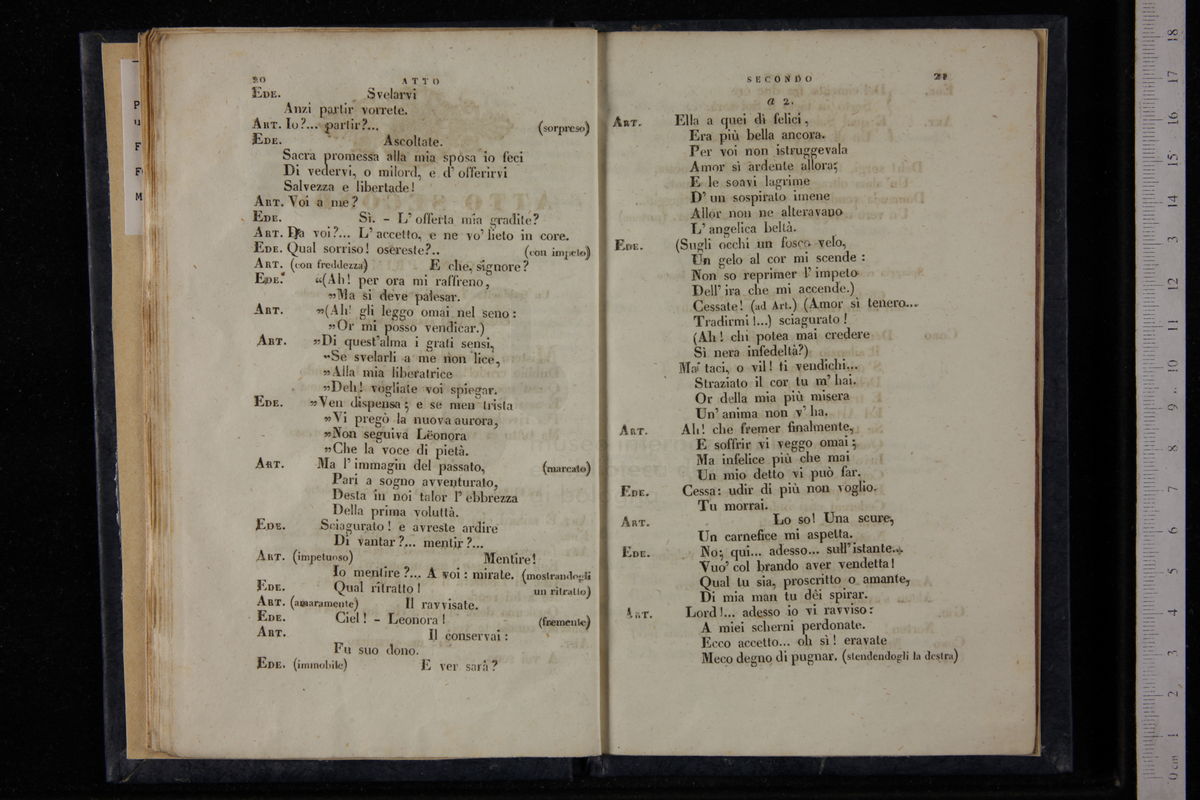 20 ATTO
EDE. Svelarvi
Anzi partir vorrete.
ART. Io?... partir?... (sorpreso)
EDE. Ascoltate.
Sacra promessa alla mia sposa io feci
Di vedervi, o milord, e d' offerirvi
Salvezza e libertade!
ART. Voi a me?
EDE. Sì. - L' offerta mia gradite?
ART. Da voi?... L' accetto, e ne vo' lieto in core.
EDE. Qual sorriso! osereste?.. (con impeto)
ART. (con freddezza) E che, signore?
EDE. “(Ah! per ora mi raffreno,
”Ma si deve palesar.
ART. ”(Ah! gli leggo omai nel seno:
”Or mi posso vendicar.)
ART. ”Di quest'alma i grati sensi,
”Se svelarli a me non lice,
”Alla mia liberatrice
”Deh! vogliate voi spiegar.
EDE. ”Ven dispensa; e se men trista
”Vi pregò la nuova aurora,
”Non seguiva Lëonora
”Che la voce di pietà.
ART. Ma l' immagin del passato, (marcato)
Pari a sogno avventurato,
Desta in noi talor l' ebbrezza
Della prima voluttà.
EDE. Sciagurato! e avreste ardire
Di vantar?... mentir?...
ART. (impetuoso) Mentire!
Io mentire?... A voi: mirate. (mostrandogli
EDE. Qual ritratto! un ritratto)
ART. (amaramente) Il ravvisate.
EDE. Ciel! - Leonora! (fremente)
ART. Il conservai:
Fu suo dono.
EDE. (immobile) E ver sarà?
SECONDO 21
a 2.
ART. Ella a quei dì felici,
Era più bella ancora.
Per voi non istruggevala
Amor sì ardente allora;
E le soavi lagrime
D' un sospirato imene
Allor non ne alteravano
L' angelica beltà.
EDE. (Sugli occhi un fosco velo,
Un gelo al cor mi scende:
Non so reprimer l' impeto
Dell' ira che mi accende.)
Cessate! (ad Art.) (Amor sì tenero...
Tradirmi!...) sciagurato!
(Ah! chi potea mai credere
Sì nera infedeltà?)
Ma taci, o vil! ti vendichi...
Straziato il cor tu m' hai.
Or della mia più misera
Un' anima non v' ha.
ART. Ah! che fremer finalmente,
E soffrir vi veggo omai;
Ma infelice più che mai
Un mio detto vi può far.
EDE. Cessa: udir di più non voglio.
Tu morrai.
ART. Lo so! Una scure,
Un carnefice mi aspetta.
EDE. No; qui... adesso... sull' istante...
Vuo' col brando aver vendetta!
Qual tu sia, proscritto o amante,
Di mia man tu dêi spirar.
ART. Lord!... adesso io vi ravviso:
A miei scherni perdonate.
Ecco accetto... oh sì! eravate
Meco degno di pugnar. (stendendogli la destra)